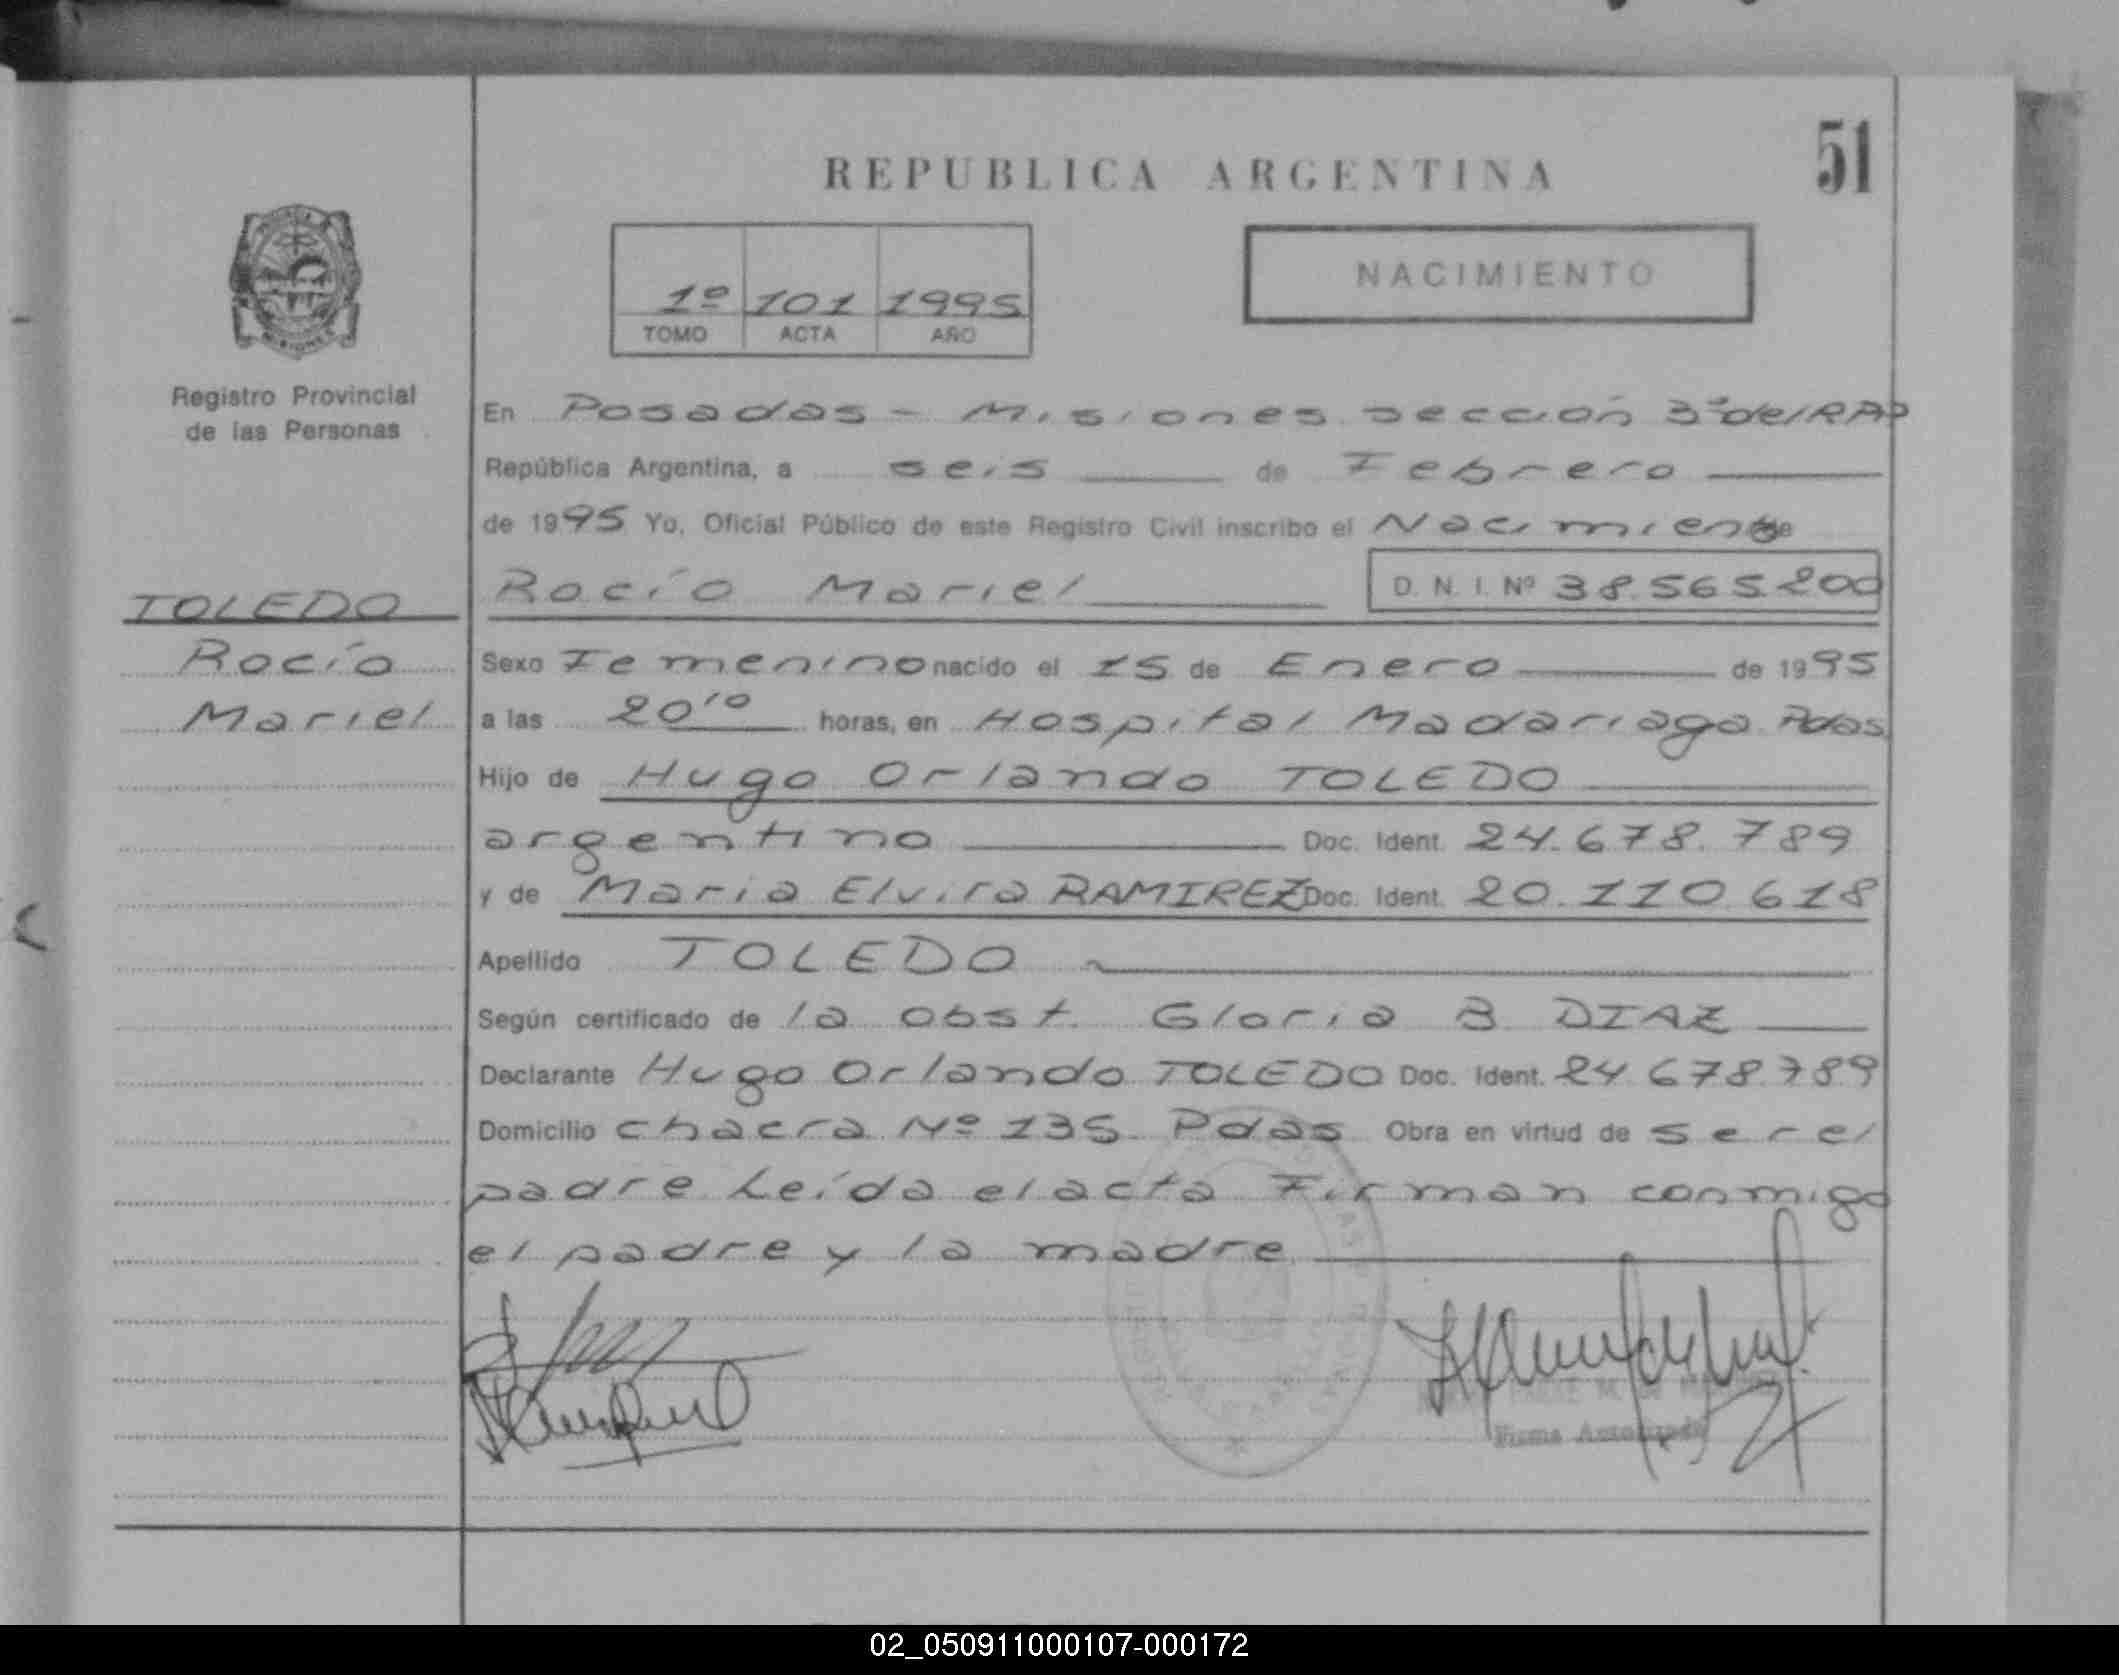 51
REPUBLICA ARGENTINA
1º 101 1995
TOMO ACTA AÑO
NACIMIENTO
MISIONES
Registro Provincial
de las Personas
TOLEDO
Rocío
Mariel
En Posadas - Misiones sección 3ª del RPP
República Argentina, a seis de Febrero
de 1995 Yo, Oficial Público de este Registro Civil inscribo el Nacimiento de
Rocío Mariel D. N. I. Nº 38.565.200
Sexo Femenino nacido el 15 de Enero de 1995
a las 20¹⁰ horas, en Hospital Madariaga Pdas
Hijo de Hugo Orlando TOLEDO
argentino Doc. Ident. 24.678.789
y de Maria Elvira RAMIREZ Doc. Ident. 20.110.618
Apellido TOLEDO
Según certificado de la obst. Gloria B DIAZ
Declarante Hugo Orlando TOLEDO Doc. Ident. 24.678.789
Domicilio chacra Nº 135 Pdas Obra en virtud de ser el
padre Leída el acta Firman conmigo
el padre y la madre
Firma Autorizada
02_050911000107-000172